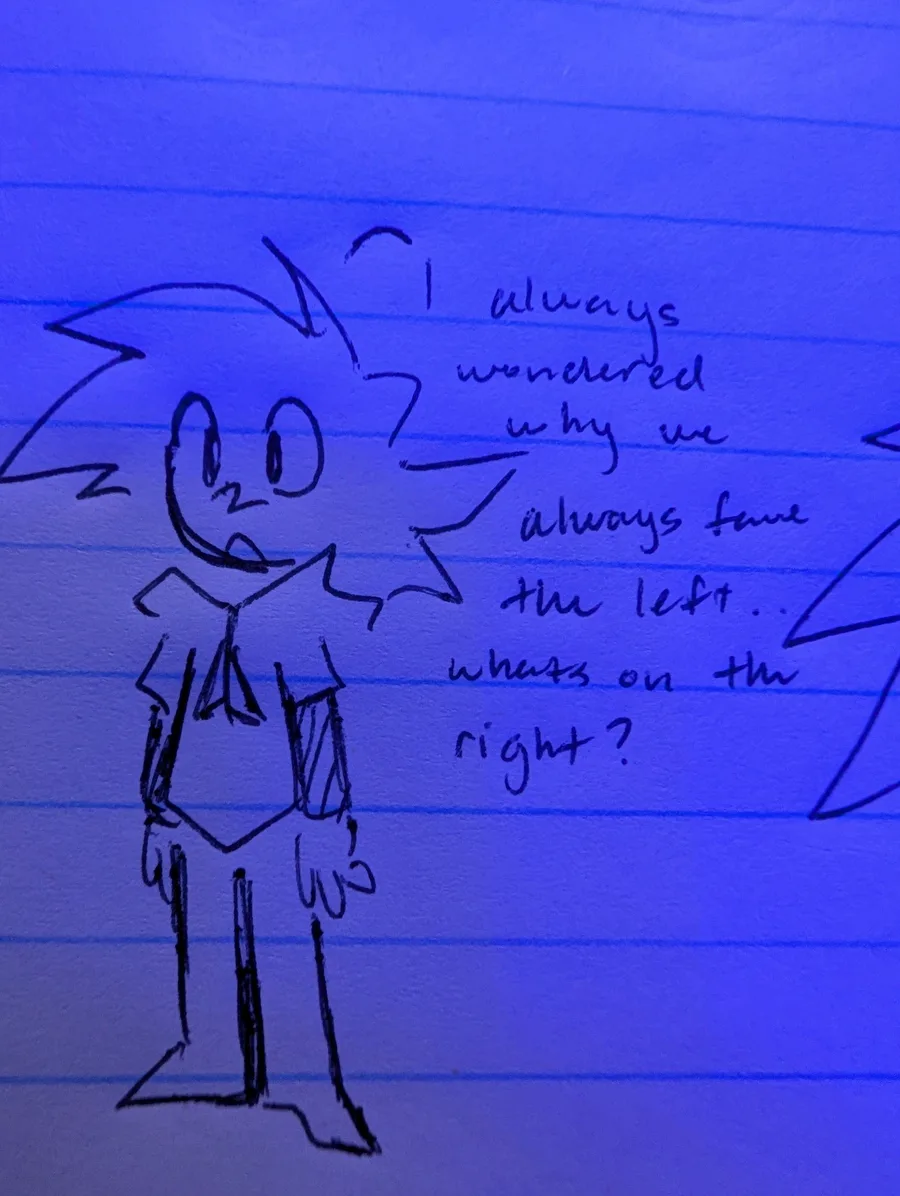 I always
wondered
why we
always face
the left..
whats on the
right?